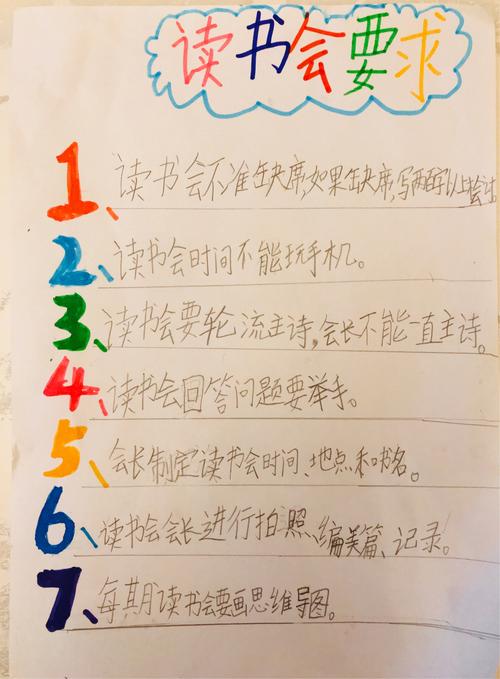 读书会要求
1、读书会不准缺席,如果缺席,写两百字以上
2、读书会时间不能玩手机。
3、读书会要轮流主诗,会长不能一直主诗。
4、读书会回答问题要举手。
5、会长制定读书会时间、地点和书名。
6、读书会会长进行拍照、编美篇、记录。
7、每期读书会要画思维导图。